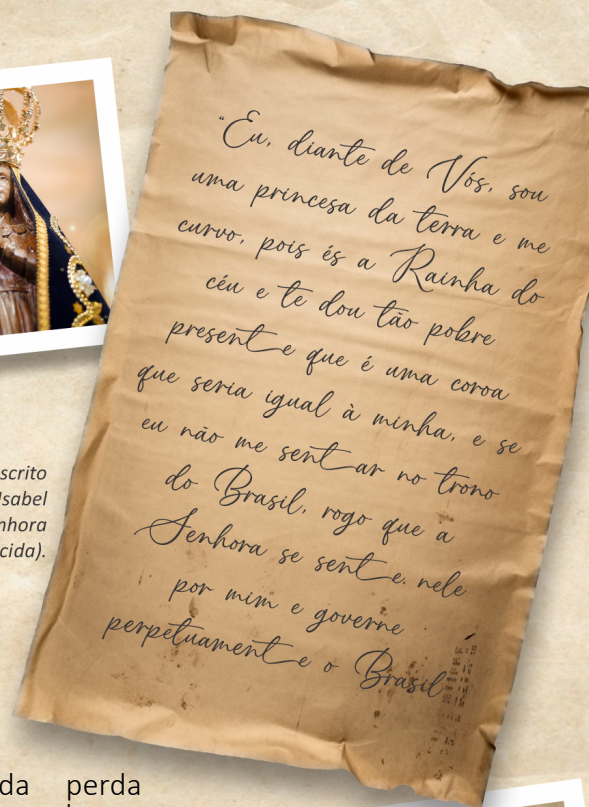 “Eu, diante de Vós, sou
uma princesa da terra e me
curvo, pois és a Rainha do
céu e te dou tão pobre
presente que é uma coroa
que seria igual à minha, e se
eu não me sentar no trono
do Brasil, rogo que a
Senhora se sente nele
por mim e governe
perpetuamente o Brasil
scrito
Isabel
nhora
cida).
da perda